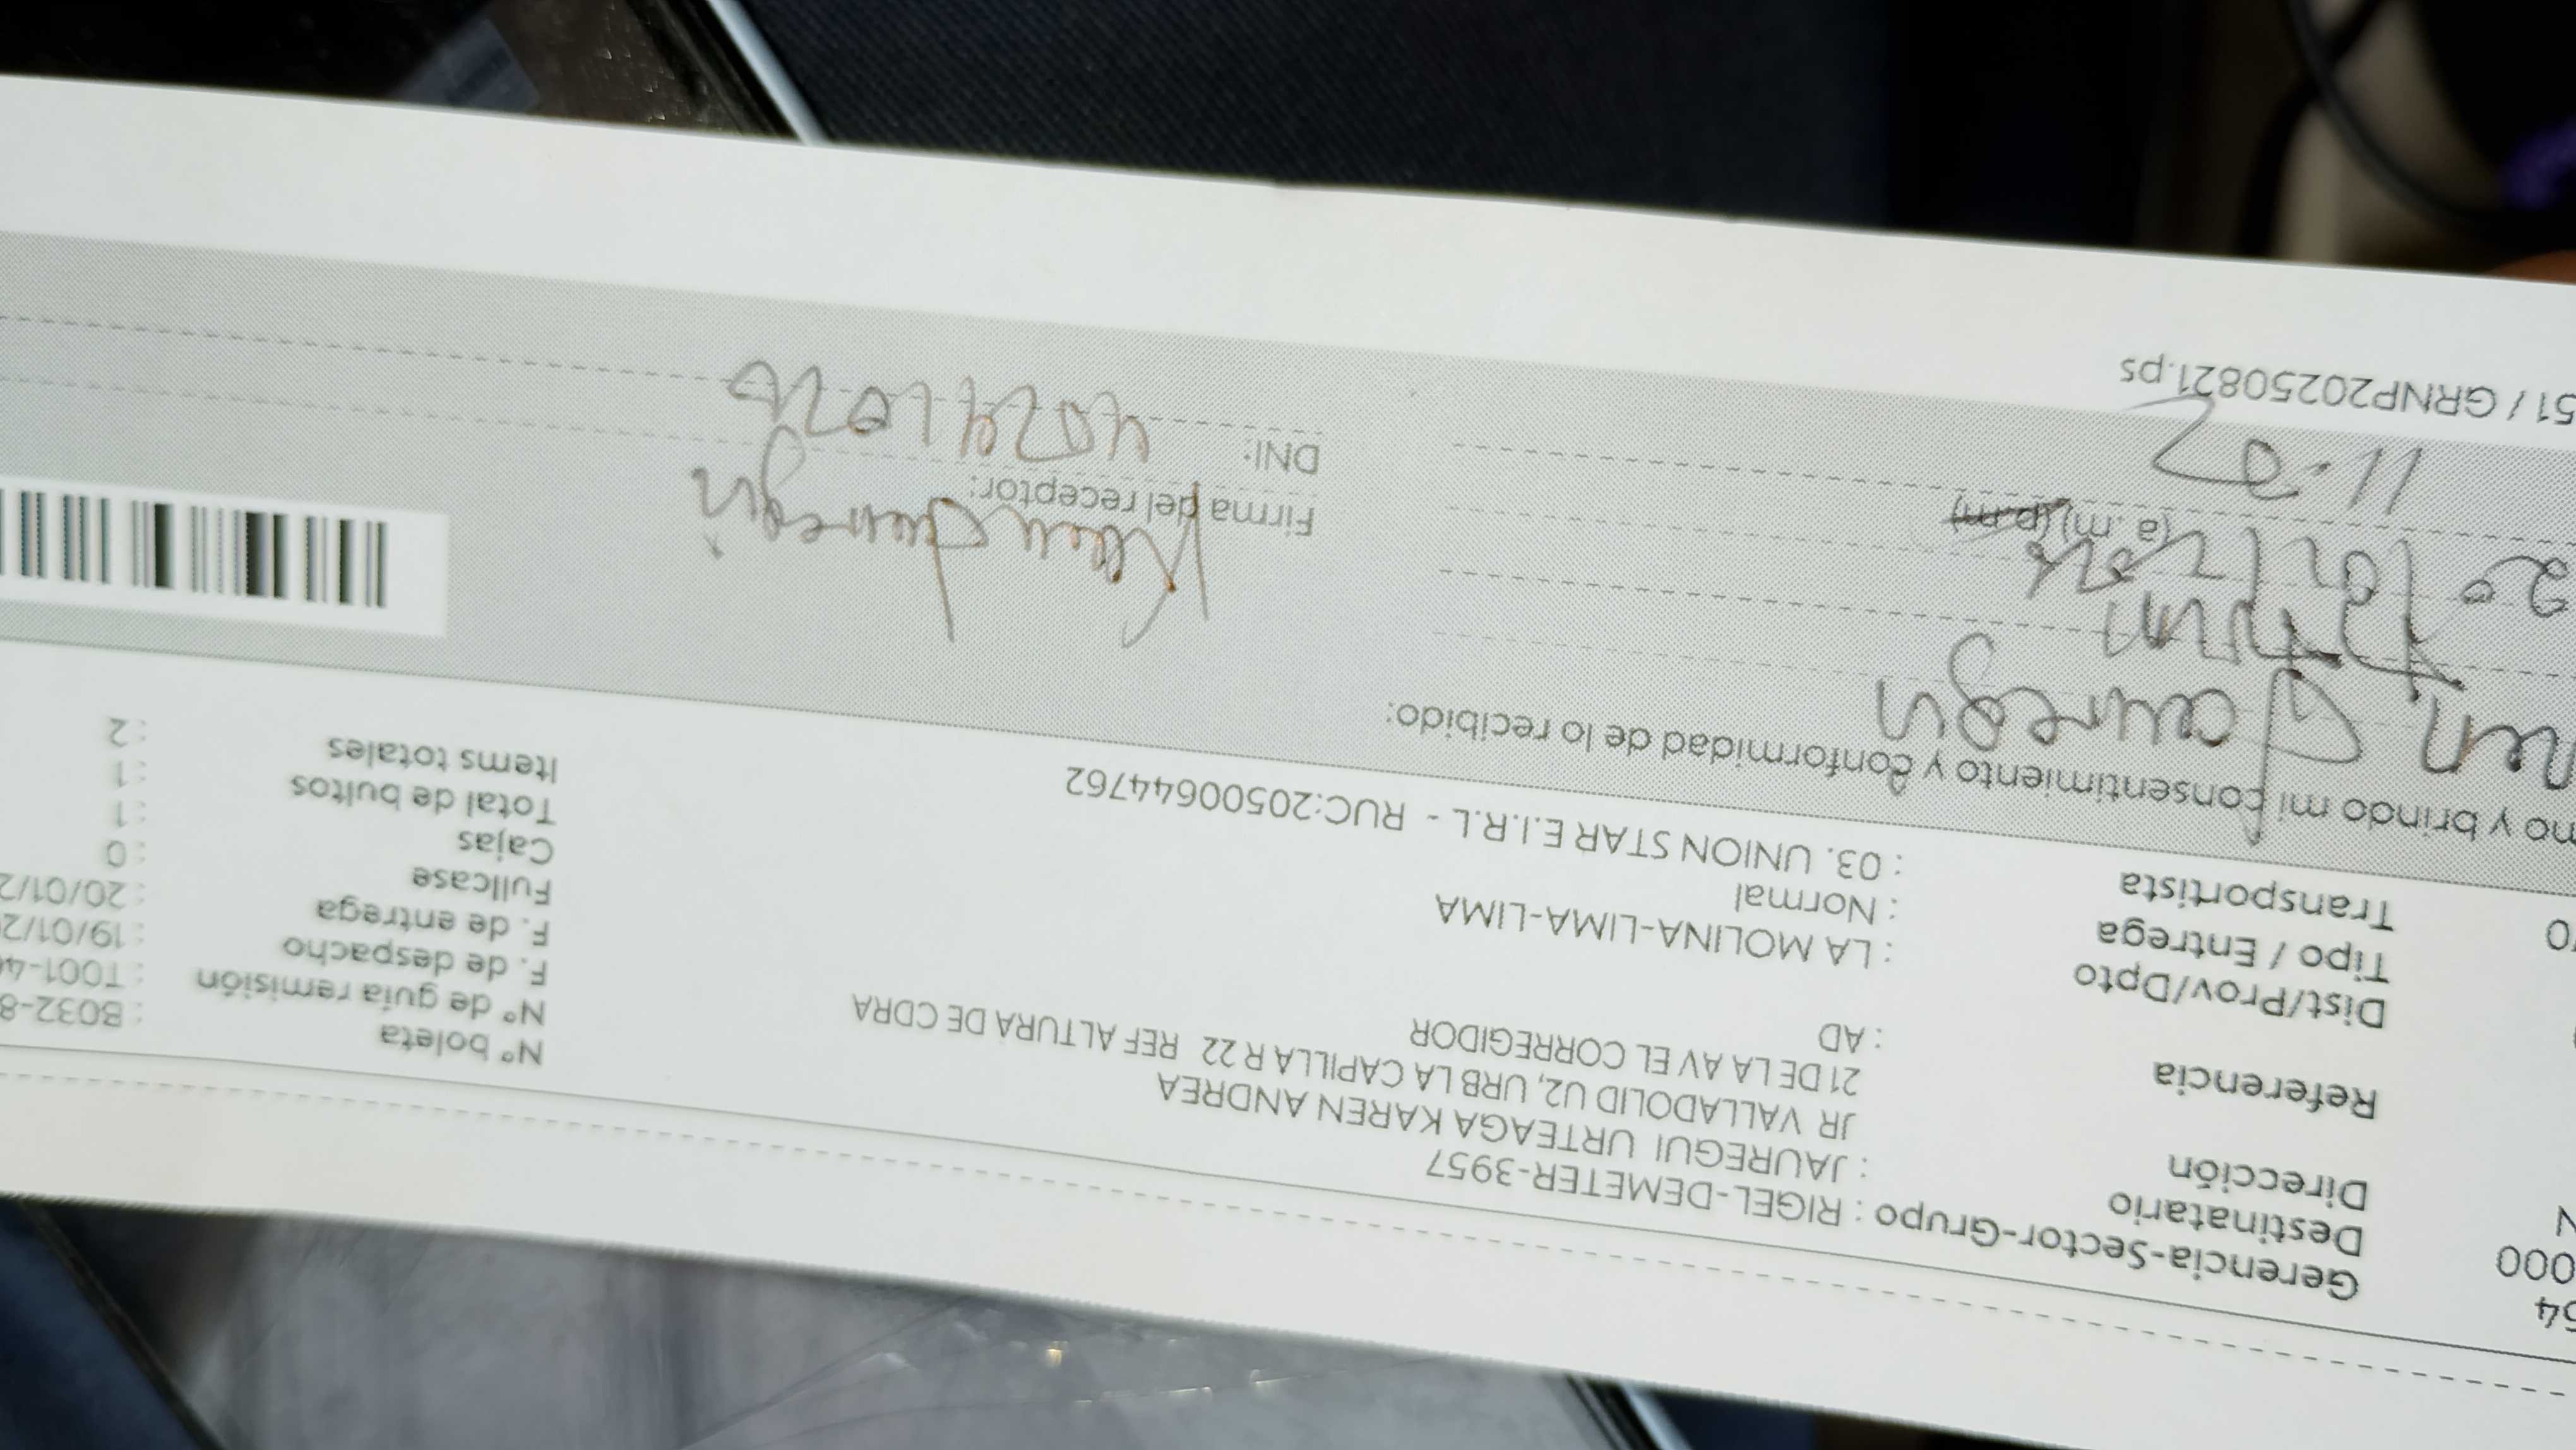 64
000
N
Gerencia-Sector-Grupo : RIGEL-DEMETER-3957
Destinatario : JAUREGUI URTEAGA KAREN ANDREA
Dirección JR VALLADOLID U2, URB LA CAPILLA R 22 REF ALTURA DE CDRA
21 DE LA AV EL CORREGIDOR
Referencia : AD
Dist/Prov/Dpto : LA MOLINA-LIMA-LIMA
Tipo / Entrega : Normal
Transportista : 03. UNION STAR E.I.R.L - RUC:20500644762
Nº boleta : B032-8
Nº de guía remisión : T001-4
F. de despacho : 19/01/2
F. de entrega : 20/01/2
Fullcase : 0
Cajas : 1
Total de bultos : 1
Items totales : 2
mo y brindo mi consentimiento y conformidad de lo recibido:
ren Jauregui
20/01/2026
(a. m) (p.m)
11:07
Firma del receptor:
Karen Jauregui
DNI:
51 / GRNP20250821.ps